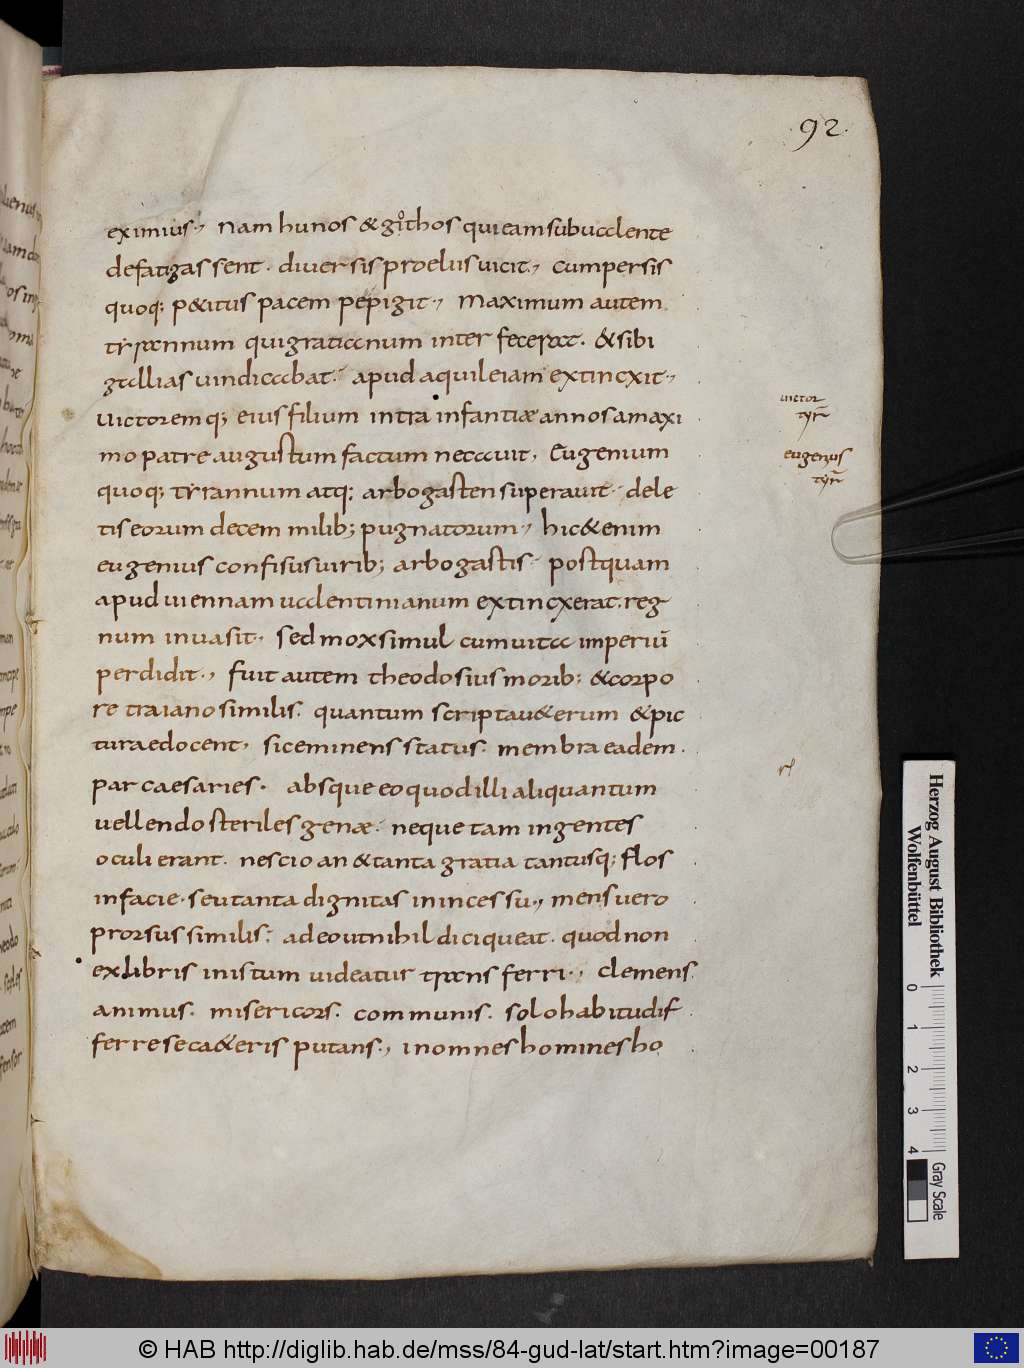 92.
eximius., Nam hunos & gothos qui eam sub ualente
defatigassent. diuersis proeliis uicit., cum persis
quoq; p&itus pacem pepigit., Maximum autem
tyrannum qui gratianum inter fecerat. & sibi
gallias uindicabat. apud aquileiam extincxit.,
uictorem q; eius filium intra infantiae annos a maxi
mo patre augustum factum necauit, Eugenium
quoq; tyrannum atq; arbogasten superauit. dele
tis eorum decem milib; pugnatorum., hic &enim
eugenius confisus uirib; arbogastis. postquam
apud uiennam ualentinianum extincxerat. reg
num inuasit. sed mox simul cum uita imperiū
perdidit., fuit autem theodosius morib; & corpo
re traiano similis. quantum scripta u&erum & pic
turae docent, sic eminens status. membra eadem.
par caesaries. absque eo quod illi aliquantum
uellendo steriles genae. neque tam ingentes
oculi erant. nescio an & tanta gratia tantusq; flos
in facie. seu tanta dignitas in incessu., mens uero
prorsus similis. adeo ut nihil dici queat. quod non
ex libris in istum uideatur transferri., clemens.
animus. misericors. communis. solo habitu dif
ferre se ca&eris putans., in omnes homines ho
uictor
tyr̄
eugenius
tyr̄
Herzog August Bibliothek
Wolfenbüttel
0 1 2 3 4
Gray Scale
© HAB http://diglib.hab.de/mss/84-gud-lat/start.htm?image=00187